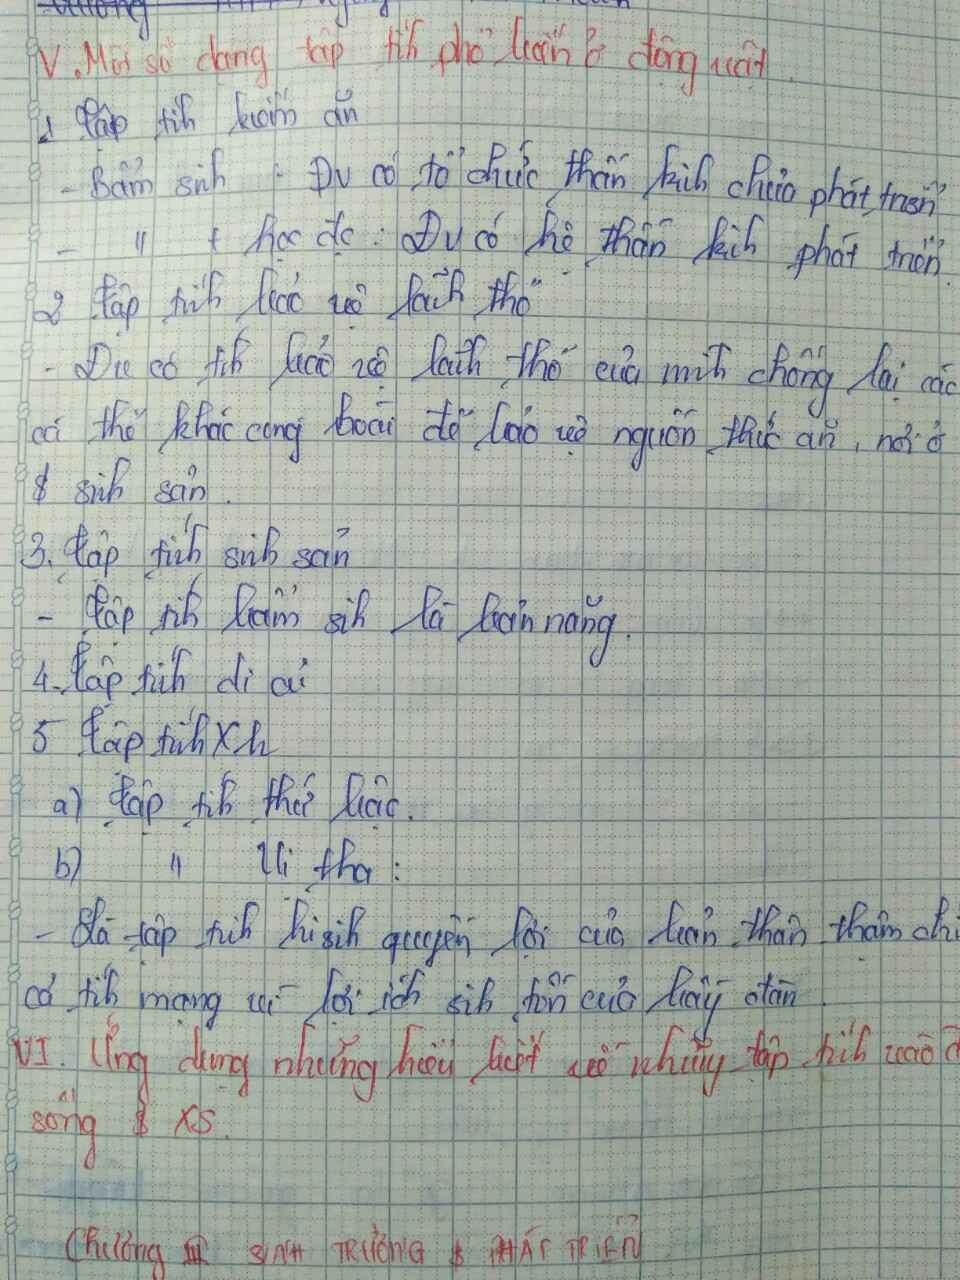 V. Một số dạng tập tính phổ biến ở động vật.
1 Tập tính kiếm ăn
- Bẩm sinh : ĐV có tổ chức thần kinh chưa phát triển
- " + học đc : ĐV có hệ thần kinh phát triển.
2 Tập tính bảo vệ lãnh thổ
- ĐV có tính bảo vệ lãnh thổ của mình chống lại các
cá thể khác cùng loài để bảo vệ nguồn thức ăn, nơi ở
& sinh sản.
3. Tập tính sinh sản
- Tập tính bẩm sinh là bản năng.
4. Tập tính di cư
5 Tập tính XH
a) Tập tính thứ bậc.
b) " Vị tha :
- Là tập tính hi sinh quyền lợi của bản thân thậm chí
cả tính mạng vì lợi ích sinh tồn của bầy đàn.
VI. Ứng dụng những hiểu biết về những tập tính vào đ
sống & XS.
Chương III SINH TRƯỞNG & PHÁT TRIỂN